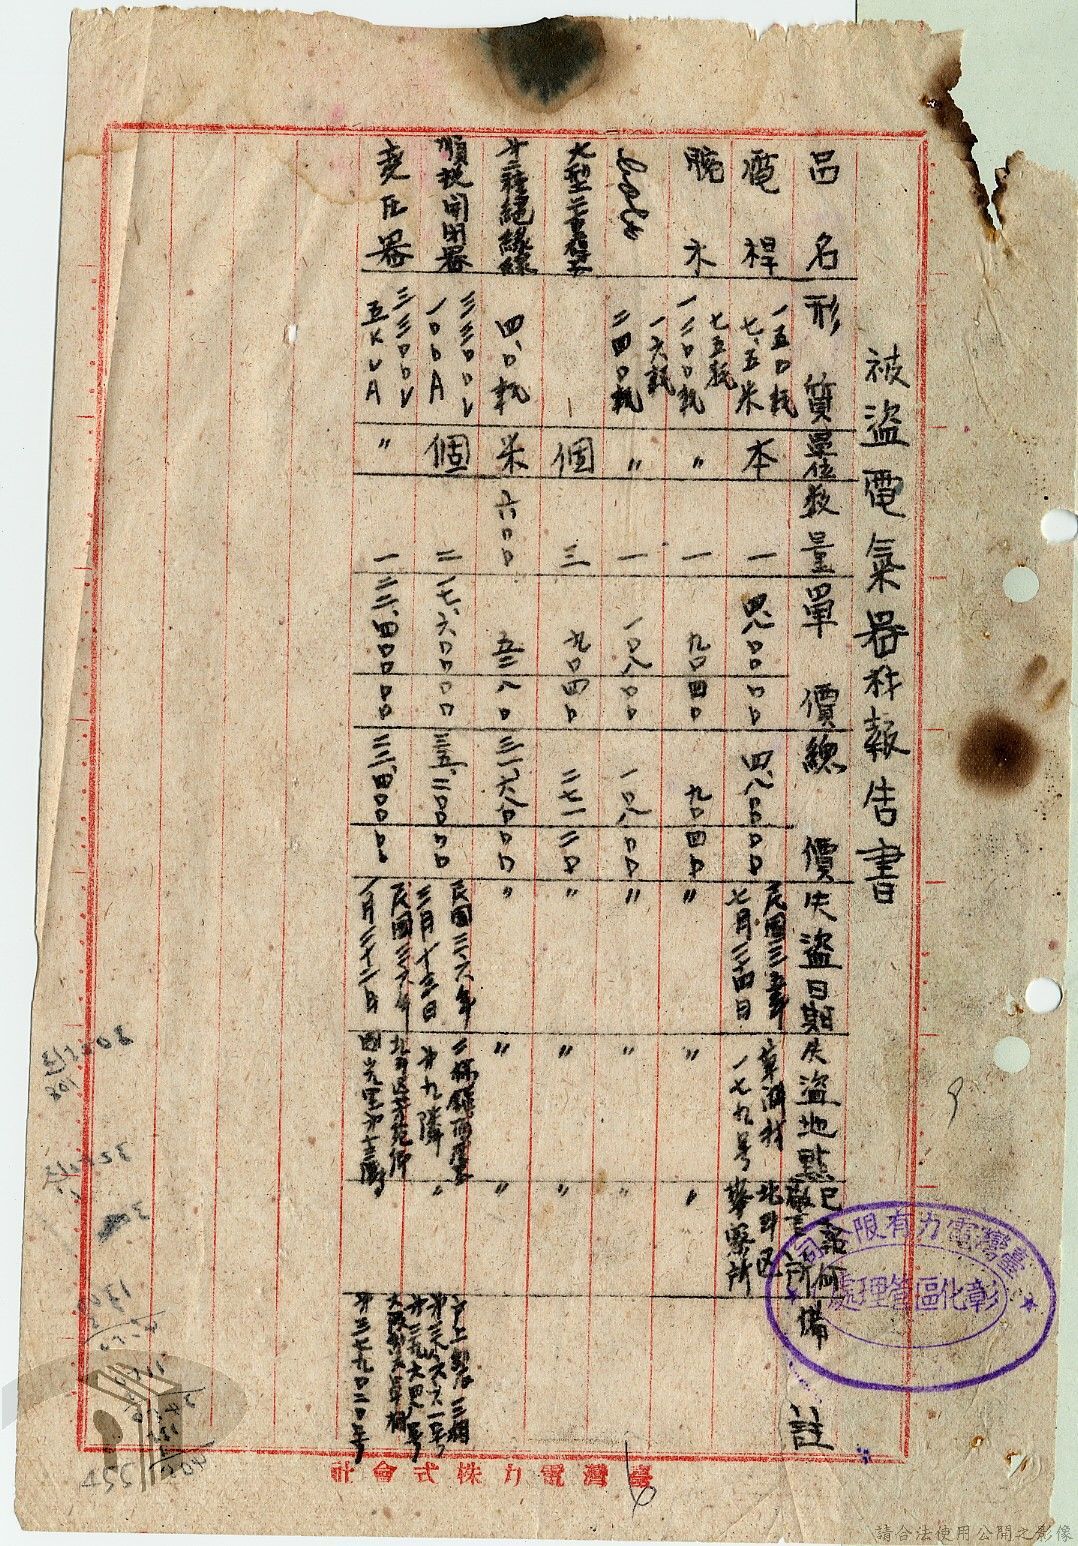 被盜電氣器材報告書
品名 形質 單位 數量 單價 總價 失盜日期 失盜地點 已報何警所 備註
電桿 一五〇粍 七.五米 本 一 四八〇〇〇〇 四.八〇〇〇〇 民國三五年七月二四日 草湖村一七九号 北斗区警察所
腕木 七五粍 一二〇〇粍 〃 一 九〇四〇 九〇四〇 〃 〃 〃
一六粍 二四〇粍 〃 一 一〇八〇〇 一〇八〇〇 〃 〃 〃
大型二重碍子 個 三 九〇四〇 二七一二〇 〃 〃 〃
第二種絕緣線 四.〇粍 米 六〇〇 五二八〇 三一.六八〇〇〇 〃 〃 〃
順抗開閉器 三三〇〇V 一〇〇A 個 二 一七.六〇〇〇〇 三五.二〇〇〇〇 民國三六年三月十三日 第九隣 〃
變圧器 三三〇〇V 五KVA 〃 一 二二.四〇〇〇〇 二二.四〇〇〇〇 民國三六年一月二十二日 北斗区 國光里第十三隣 第三七九〇二〇号
臺灣電力有限公司
彰化區管理處
臺灣電力株式會社
455
請合法使用公開之影像